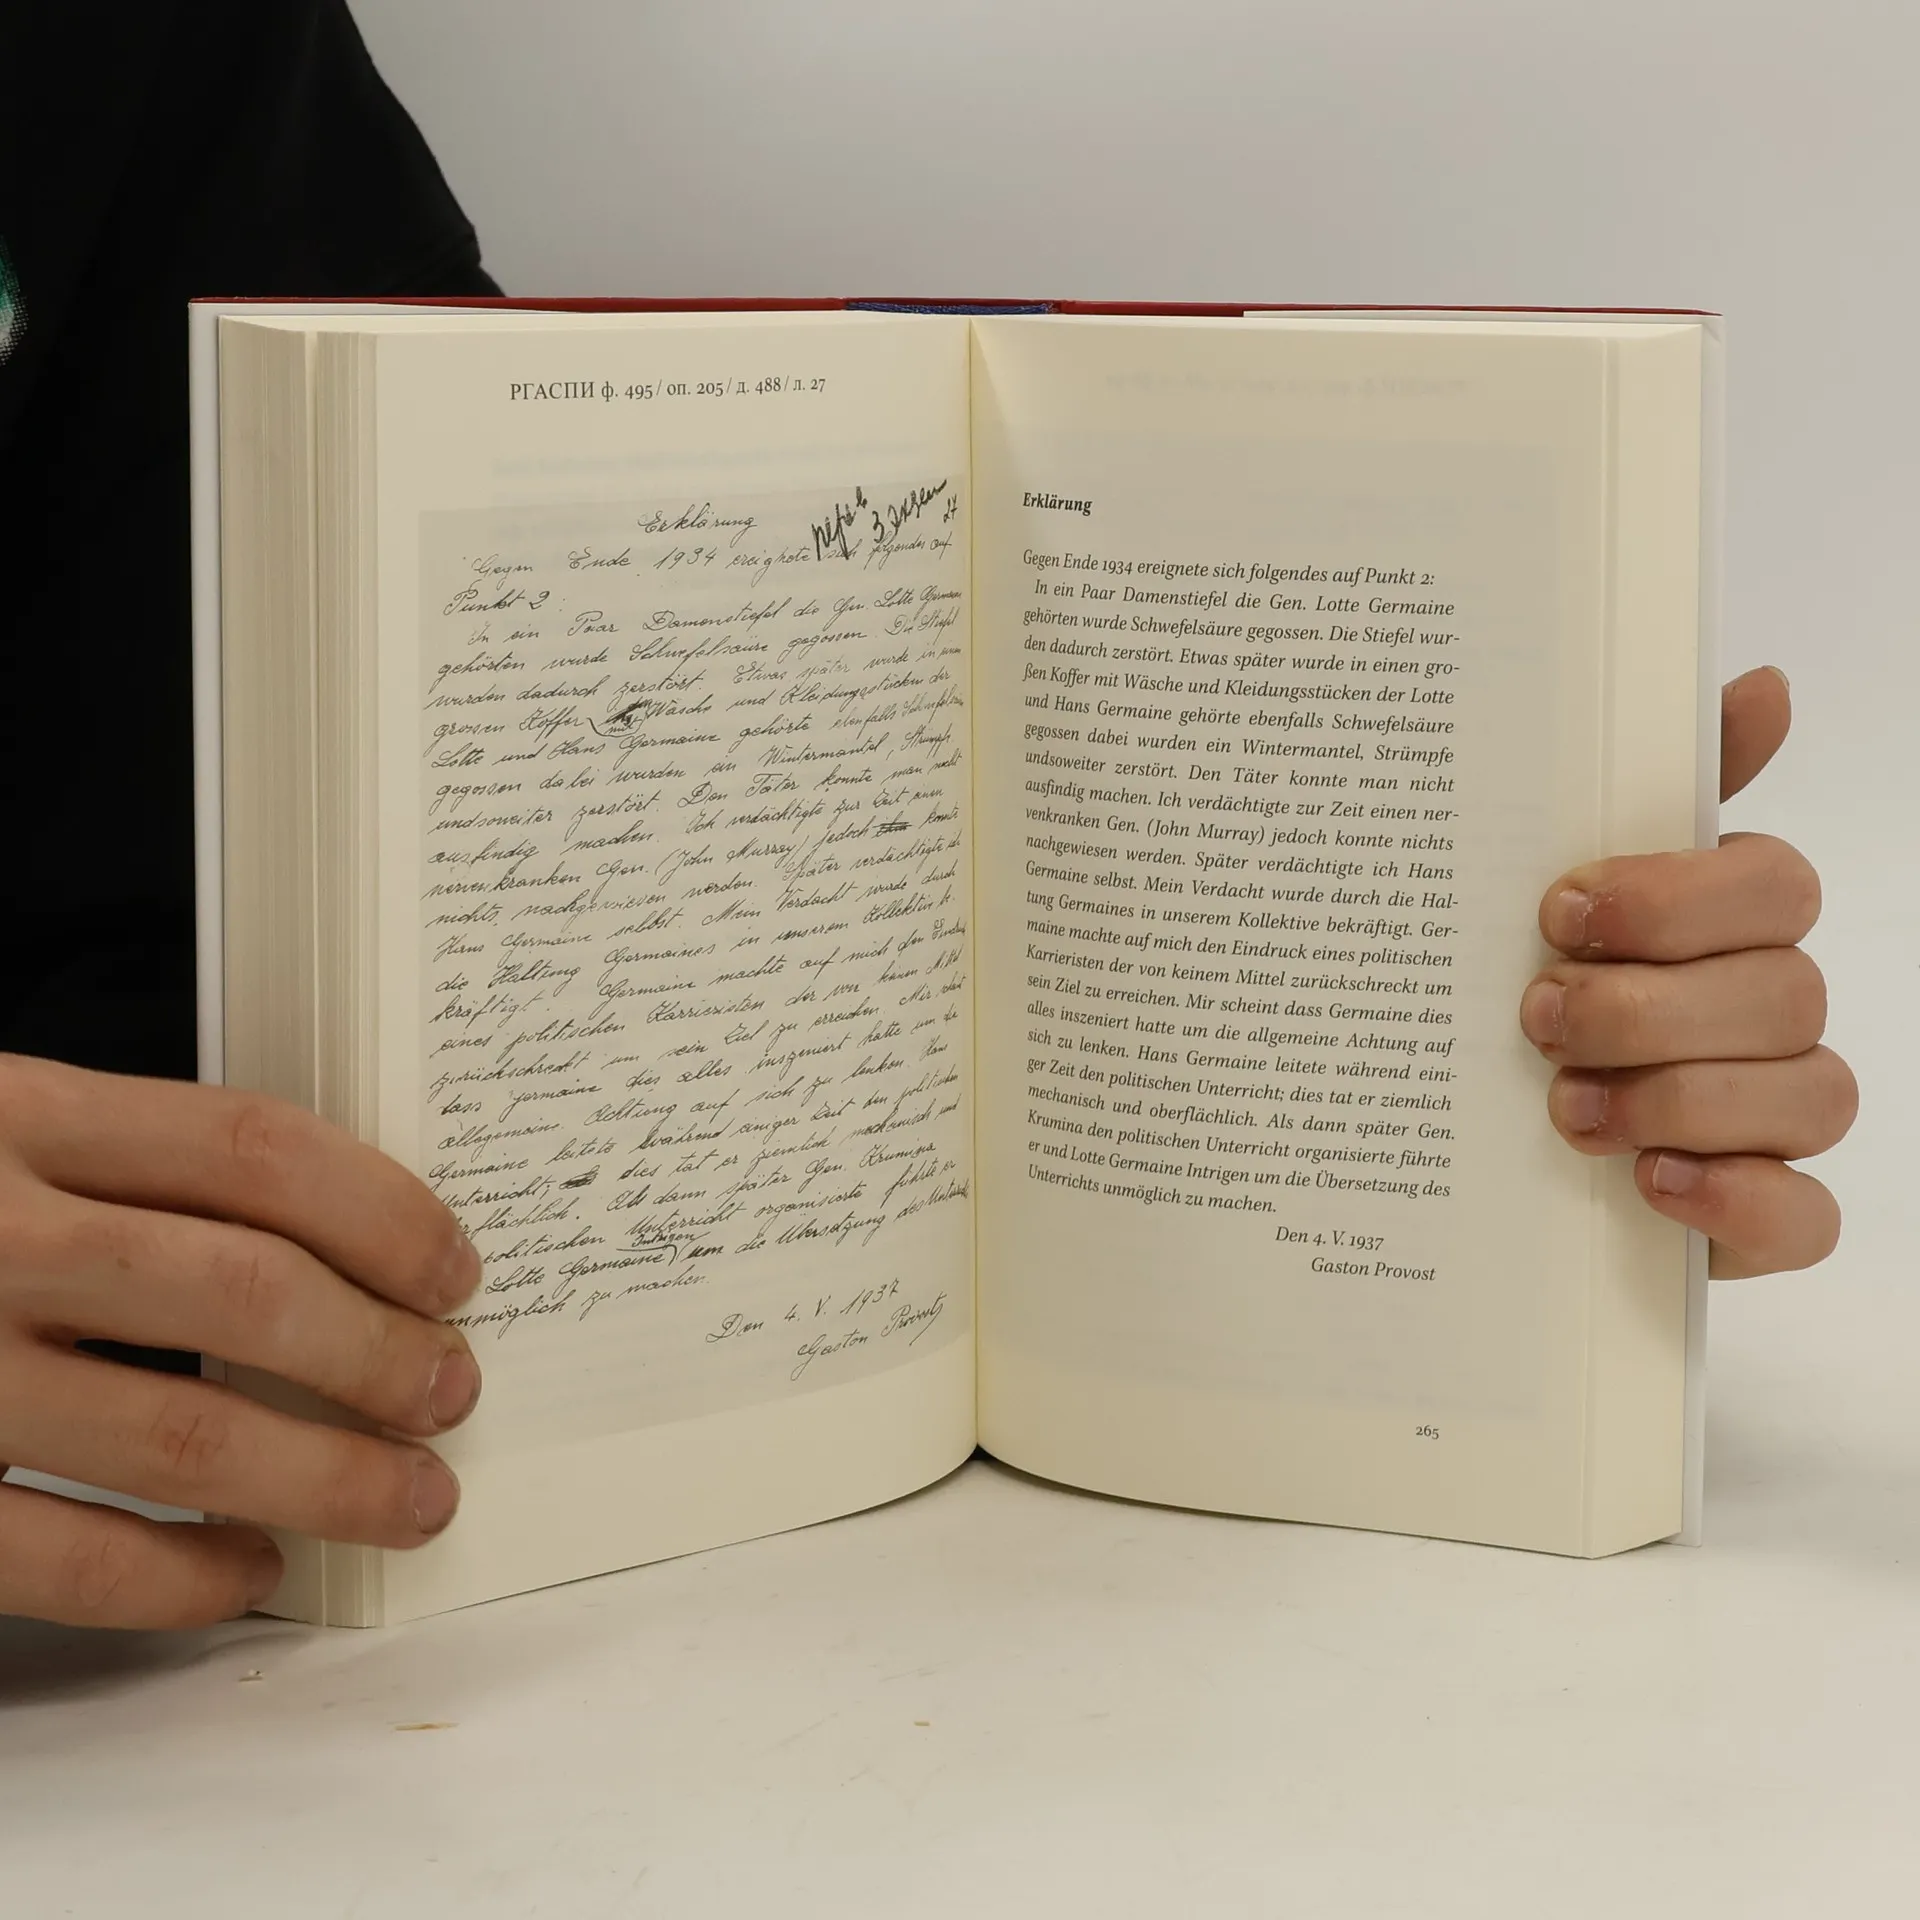 РГАСПИ ф. 495/ оп. 205/ д. 488/ л. 27
Erklärung
27
Gegen Ende 1934 ereignete sich folgendes auf
Punkt 2:
In ein Paar Damenstiefel die Gen. Lotte Germaine
gehörten wurde Schwefelsäure gegossen. Die Stiefel
wurden dadurch zerstört. Etwas später wurde in einen
grossen Koffer mit Wäsche und Kleidungsstücken der
Lotte und Hans Germaine gehörte ebenfalls Schwefelsäure
gegossen dabei wurden ein Wintermantel, Strümpfe
undsoweiter zerstört. Den Täter konnte man nicht
ausfindig machen. Ich verdächtigte zur Zeit einen
nervenkranken Gen. (John Murray) jedoch konnte
nichts nachgewiesen werden. Später verdächtigte ich
Hans Germaine selbst. Mein Verdacht wurde durch
die Haltung Germaines in unserem Kollektive be-
kräftigt. Germaine machte auf mich den Eindruck
eines politischen Karrieristen der von keinem Mittel
zurückschreckt um sein Ziel zu erreichen. Mir scheint
dass Germaine dies alles inszeniert hatte um die
allegemeine Achtung auf sich zu lenken. Hans
Germaine leitete während einiger Zeit den politischen
Unterricht; dies tat er ziemlich mechanisch und
erflächlich. Als dann später Gen. Krumina
politischen Unterricht organisierte führte er
Lotte Germaine Intrigen um die Übersetzung des Unterrichts
unmöglich zu machen.
Den 4. V. 1937
Gaston Provost
Erklärung
Gegen Ende 1934 ereignete sich folgendes auf Punkt 2:
In ein Paar Damenstiefel die Gen. Lotte Germaine
gehörten wurde Schwefelsäure gegossen. Die Stiefel wur-
den dadurch zerstört. Etwas später wurde in einen gro-
ßen Koffer mit Wäsche und Kleidungsstücken der Lotte
und Hans Germaine gehörte ebenfalls Schwefelsäure
gegossen dabei wurden ein Wintermantel, Strümpfe
undsoweiter zerstört. Den Täter konnte man nicht
ausfindig machen. Ich verdächtigte zur Zeit einen ner-
venkranken Gen. (John Murray) jedoch konnte nichts
nachgewiesen werden. Später verdächtigte ich Hans
Germaine selbst. Mein Verdacht wurde durch die Hal-
tung Germaines in unserem Kollektive bekräftigt. Ger-
maine machte auf mich den Eindruck eines politischen
Karrieristen der von keinem Mittel zurückschreckt um
sein Ziel zu erreichen. Mir scheint dass Germaine dies
alles inszeniert hatte um die allgemeine Achtung auf
sich zu lenken. Hans Germaine leitete während eini-
ger Zeit den politischen Unterricht; dies tat er ziemlich
mechanisch und oberflächlich. Als dann später Gen.
Krumina den politischen Unterricht organisierte führte
er und Lotte Germaine Intrigen um die Übersetzung des
Unterrichts unmöglich zu machen.
Den 4. V. 1937
Gaston Provost
265